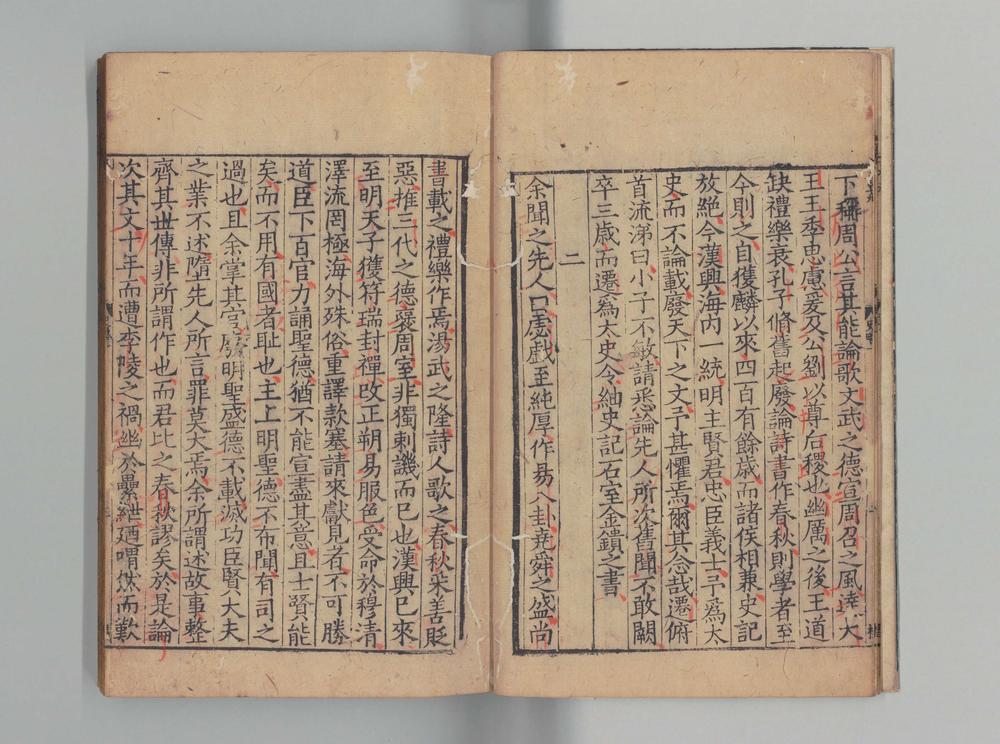 下稱周公言其能論歌文武之德宣周召之風達大
王王季思慮爰及公劉以尊后稷也幽厲之後王道
缺禮樂衰孔子脩舊起廢論詩書作春秋則學者至
今則之自獲麟以來四百有餘歲而諸侯相兼史記
放絶今漢興海內一統明主賢君忠臣義士予爲太
史而不論載廢天下之文予甚懼焉爾其念哉遷俯
首流涕曰小子不敏請悉論先人所次舊聞不敢闕
卒三歲而遷爲太史令紬史記石室金鐀之書
二
余聞之先人曰虙戲至純厚作易八卦堯舜之盛尚
書載之禮樂作焉湯武之隆詩人歌之春秋采善貶
惡推三代之德襃周室非獨刺譏而已也漢興已來
至明天子獲符瑞封禪改正朔易服色受命於穆清
澤流罔極海外殊俗重譯款塞請來獻見者不可勝
道臣下百官力誦聖德猶不能宣盡其意且士賢能
矣而不用有國者耻也主上明聖德不布聞有司之
過也且余掌其官廢明聖盛德不載滅功臣賢大夫
之業不述墮先人所言罪莫大焉余所謂述故事整
齊其世傳非所謂作也而君比之春秋謬矣於是論
次其文十年而遭李陵之禍幽於纍紲廼喟然而歎